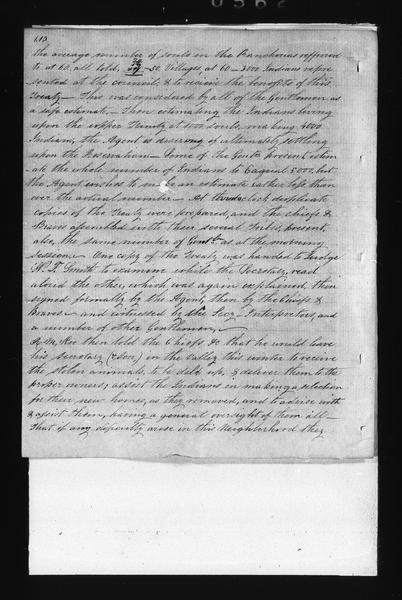 the average number of souls in the Rancherias referred
to at 60, all told, 50 Villages, at 60 — 3000 Indians repre
sented at the council, & to receive the benefits of this
Treaty — This was considered by all of the Gentlemen as
a safe estimate — Then estimating the Indians living
upon the upper at 1000 souls, making 4000
Indians, the Agent is of ultimately settling
upon the Reservation — Some of the Gentn. present estim
ate the whole number of Indians to equal 5000, but
the Agent wishes to make an estimate rather less than
over the actual number — At three o'clock duplicate
copies of the Treaty were prepared, and the chiefs &
Braves assembled with their several tribes, present,
also, the same number of Gentn. as at the morning
session — One copy of the Treaty was handed to Judge
Smith to examine while the Secretary read
aloud the other, which was again explained, then
signed formally by the Agent, then by the Chiefs &
Braves — and witnessed by the Secy Interpreters, and
a number of other Gentlemen,
told the Chiefs &c that he would leave
his Secretary (& son) in the valley this winter to receive
the stolen animals, to be deld. up, & deliver them to the
proper owners; assist the Indians in making a selection
for their new homes, as they removed, and to advise with
& assist them, having a general oversight of them all —
That if any difficulty arose in this Neighborhood they